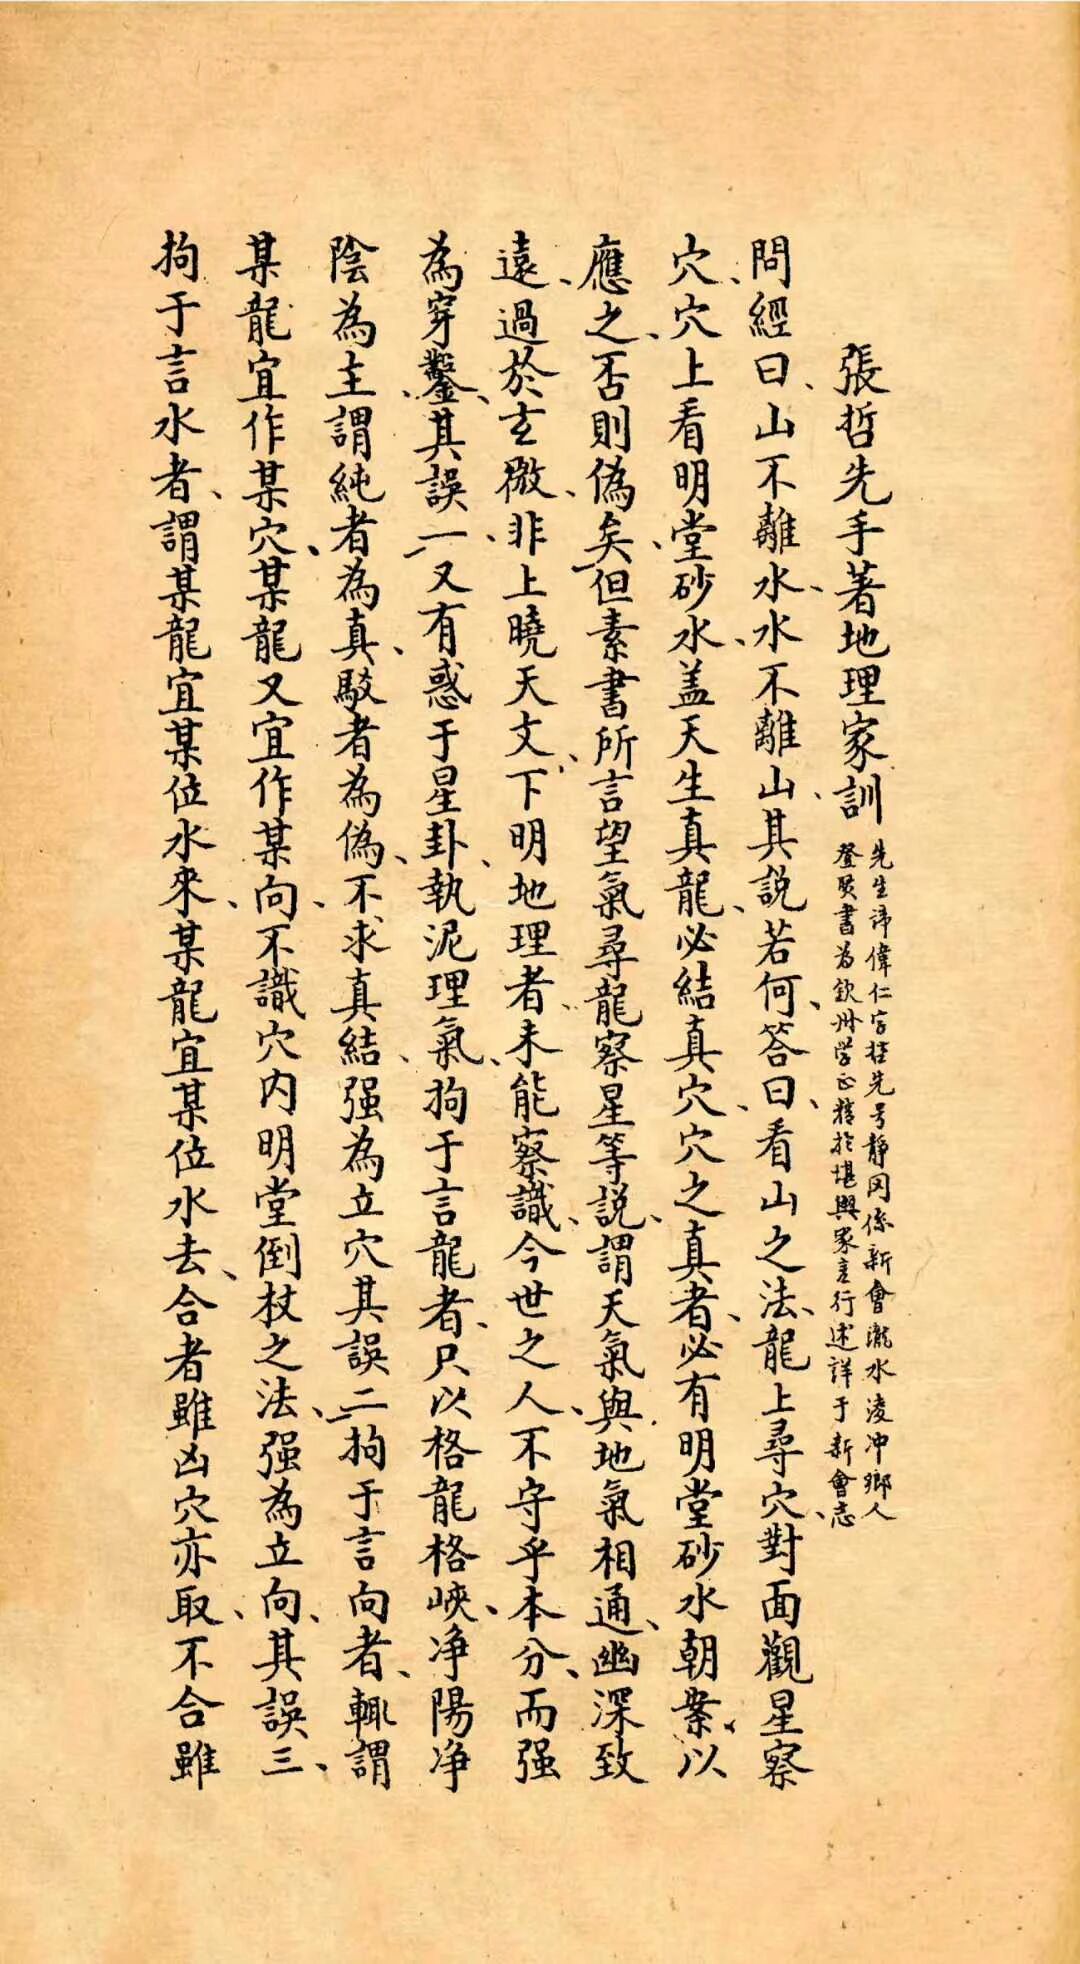 張哲先手著地理家訓
先生諱偉仁字哲先号靜岡係新會瀧水淩冲鄉人
登賢書為欽州学正精於堪輿家言行述詳于新會志
問經曰、山不離水、水不離山、其説若何、答曰、看山之法、龍上尋穴、對面觀星察
穴、穴上看明堂砂水、盖天生真龍、必結真穴、穴之真者、必有明堂砂水朝案、以
應之、否則偽矣、但素書所言望氣尋龍察星等説、謂天氣與地氣相通、幽深致
遠、過於玄微、非上曉天文、下明地理者、未能察識、今世之人、不守乎本分、而强
為穿鑿、其誤一、又有惑于星卦、執泥理氣、拘于言龍者、只以格龍格峽、净陽净
陰為主、謂純者為真、駁者為偽、不求真結、强為立穴、其誤二、拘于言向者、輒謂
某龍宜作某穴、某龍又宜作某向、不識穴内明堂倒杖之法、强為立向、其誤三、
拘于言水者、謂某龍宜某位水來、某龍宜某位水去、合者雖凶穴亦取、不合雖